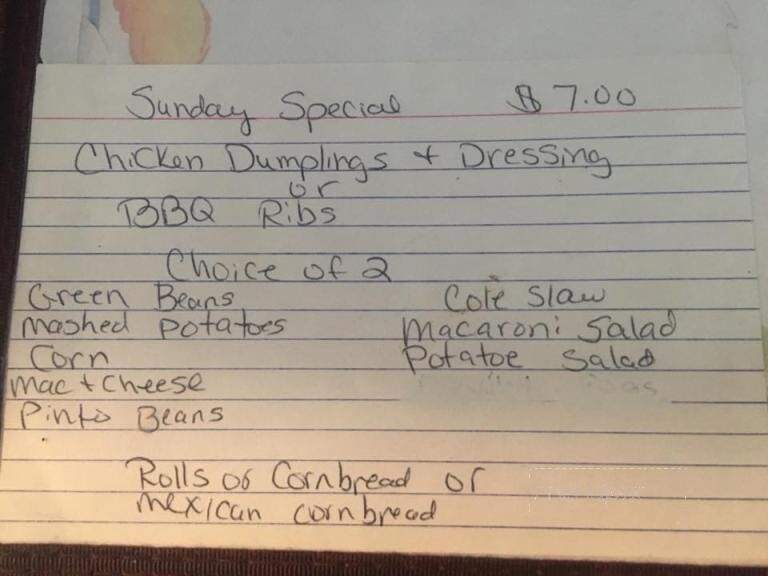 Sunday Special $7.00
Chicken Dumplings + Dressing
or
BBQ Ribs
Choice of 2
Green Beans
Mashed Potatoes
Corn
Mac + Cheese
Pinto Beans
Cole Slaw
Macaroni Salad
Potatoe Salad
Rolls or Cornbread or
Mexican cornbread